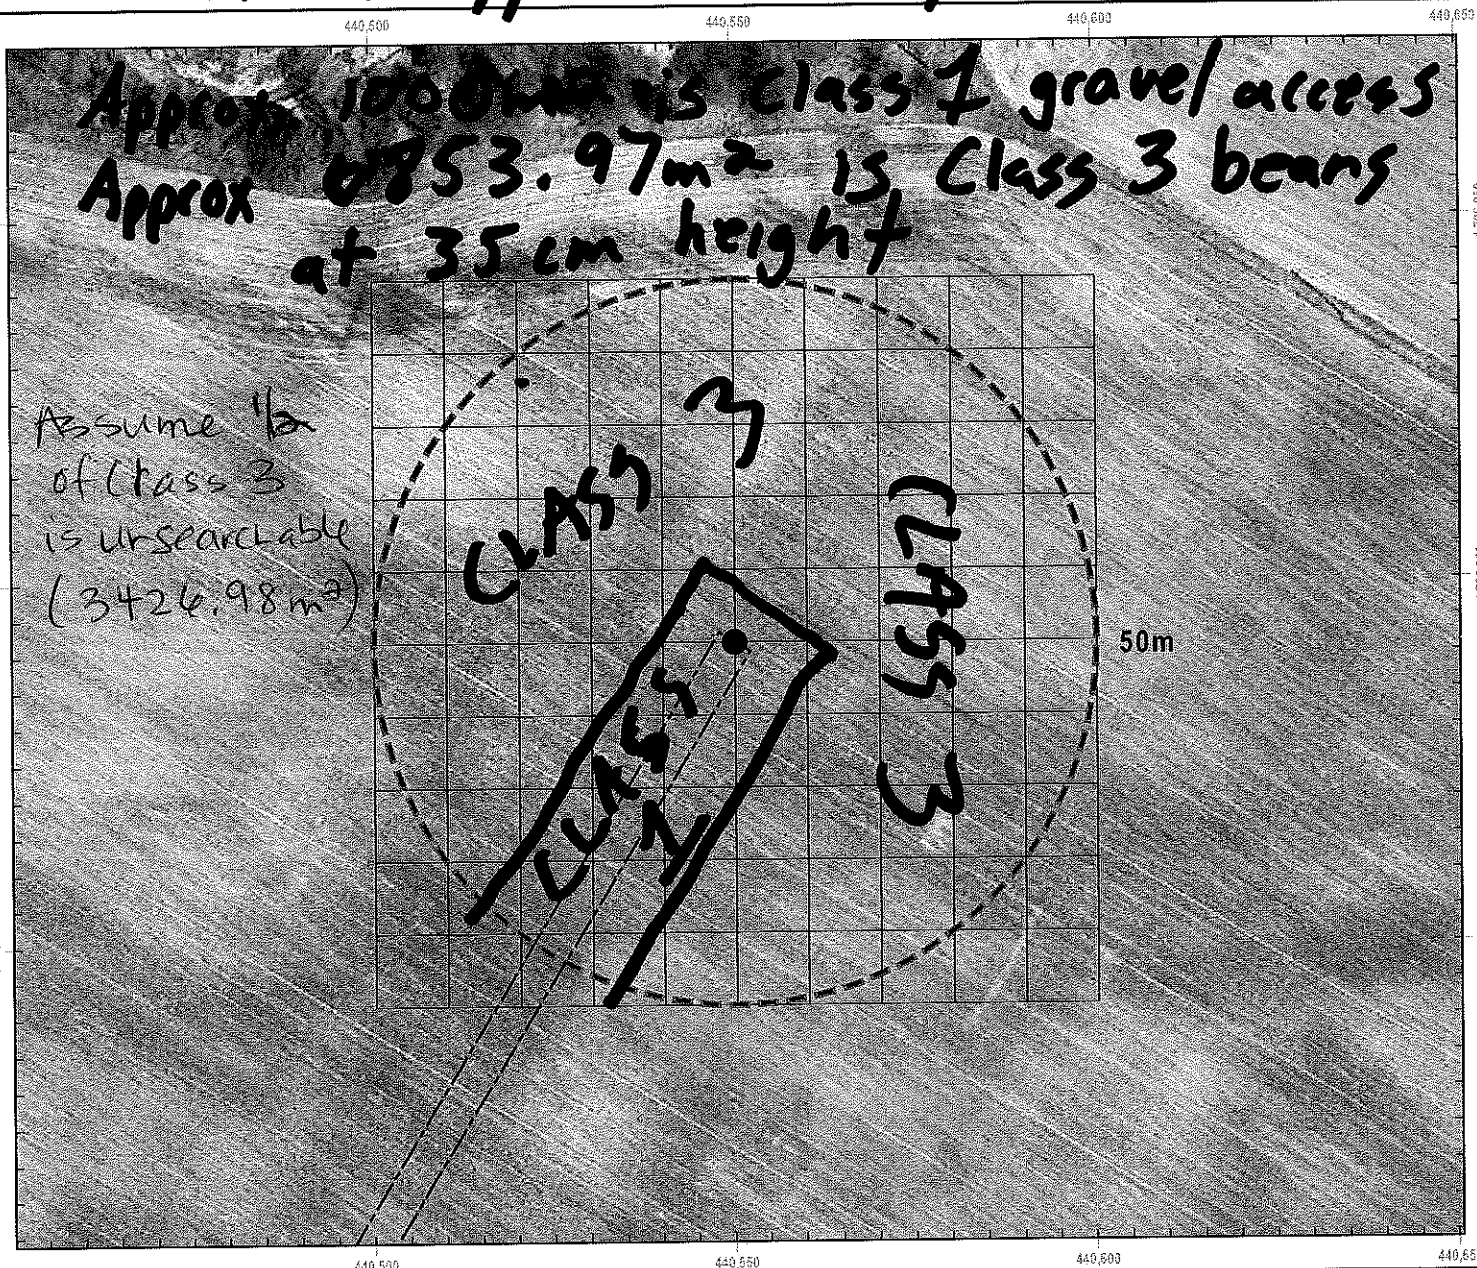 440,500 440,550 440,600 440,650
Approx 1000m² is Class 1 gravel access
Approx 6853.97m² is Class 3 beans
at 35cm height
Assume 1/2
of Class 3
is unsearchable
(3426.98m²)
CLASS 3
CLASS 3
CLASS 1
50m
440,500 440,550 440,600